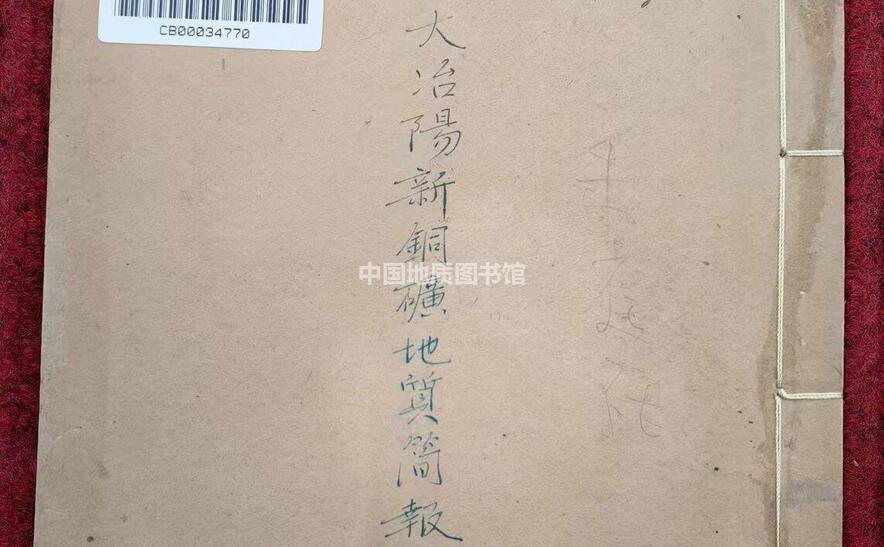 CB00034770
大冶陽新銅礦地質简報
中国地质图书馆